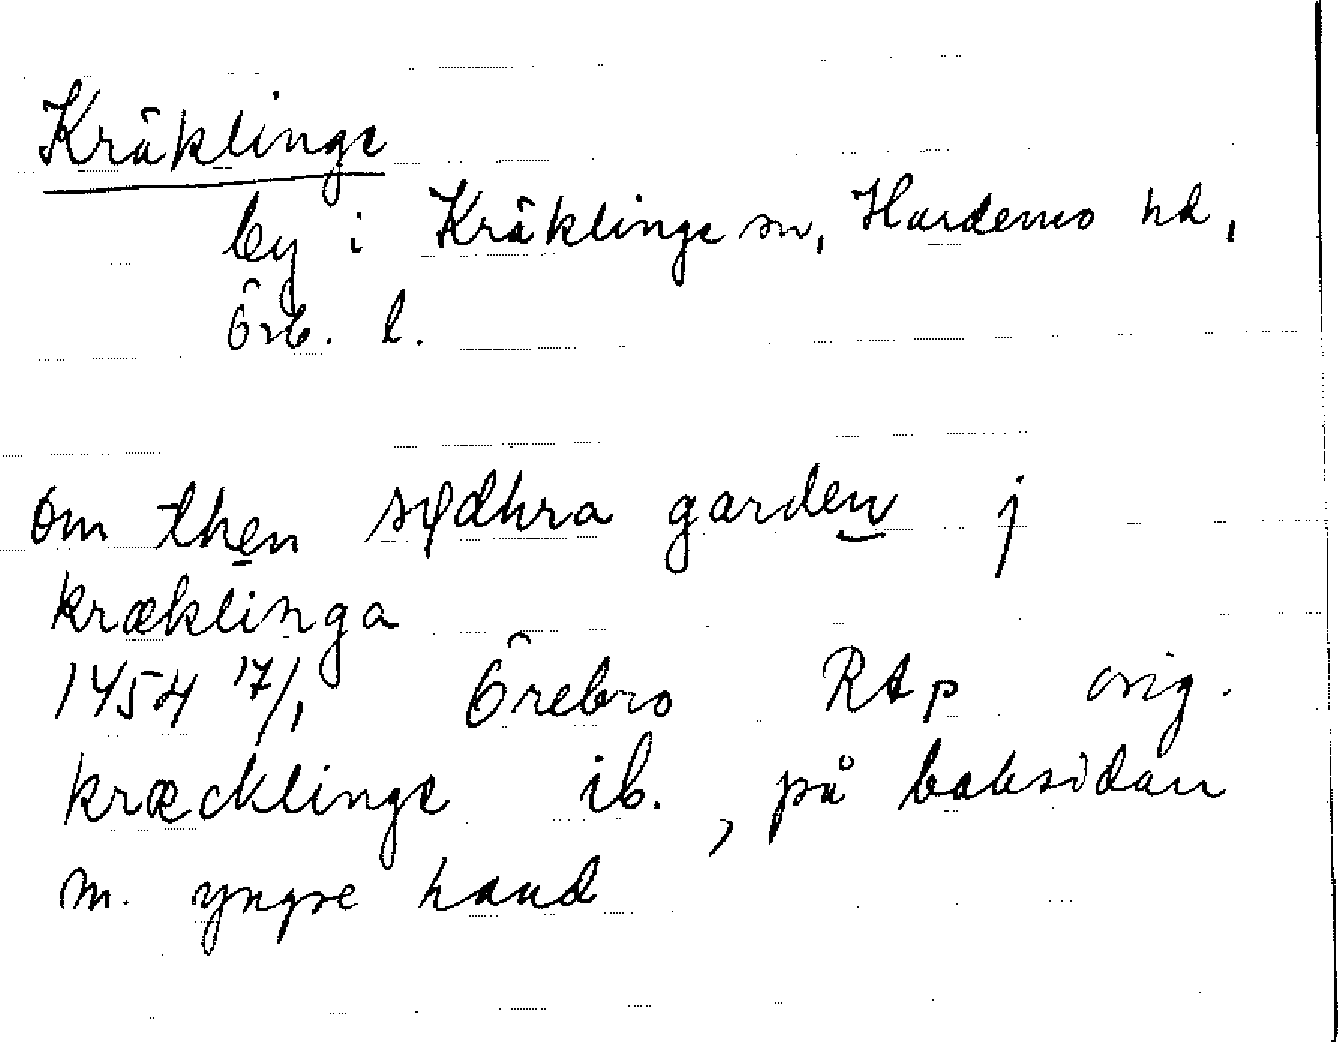 Kräklinge
by i Kräklinge sn, Hardemo hd,
Örb. l.
om then sødhra garden j
kræklinga
1454 17/1 Örebro RAp orig.
kræcklinge ib., på baksidan
m. yngre hand